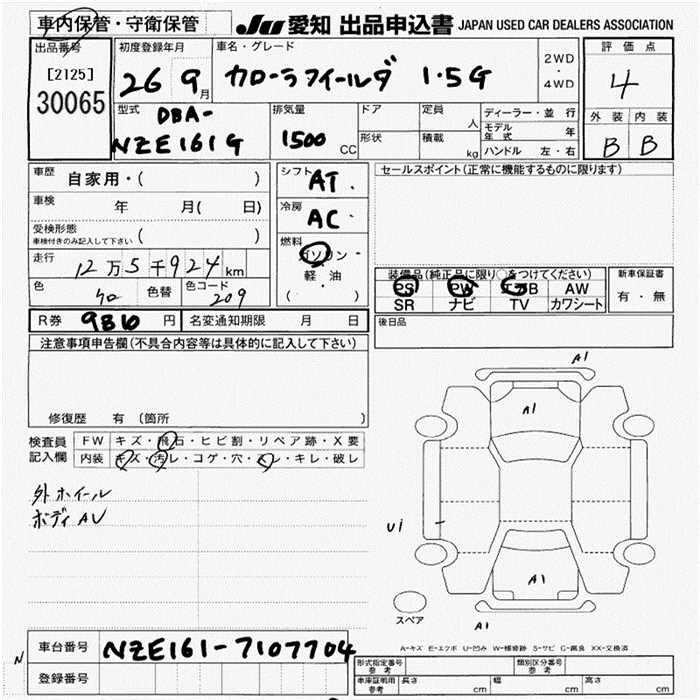 車内保管・守衛保管 JU 愛知 出品申込書 JAPAN USED CAR DEALERS ASSOCIATION
出品番号 初度登録年月 車名・グレード 評価点
[2125] 30065 26 9月 カローラフィールダ 1.5G 2WD・4WD 4
型式 DBA-NZE161G 排気量 1500CC ドア 定員 人 ディーラー・並行 外装 内装
形状 積載 kg モデル年式 年 B B
ハンドル 左・右
車歴 自家用・( ) シフト AT・ セールスポイント(正常に機能するものに限ります)
車検 年 月( 日) 冷房 AC・
受検形態 車検付きのみ記入して下さい ( ) 燃料 ガソリン・軽・油 ( )
走行 12万5千924km 装備品(純正品に限り○をつけてください) 新車保証書
色 色替 色コード 209 PS PW エアB AW 有・無
SR ナビ TV カワシート
R券 9810円 名変通知期限 月 日 後日品
注意事項申告欄(不具合内容等は具体的に記入して下さい)
修復歴 有 〔箇所 〕
検査員記入欄 FW キズ・飛石・ヒビ割・リペア跡・X要
内装 キズ・汚レ・コゲ・穴・スレ・キレ・破レ
外ホイール
ボディAU
A1
A1
U1
A1
A1
スペア
A-キズ E-エクボ U-凹み W-補修跡 S-サビ C-腐食 XX-交換済
N 車台番号 NZE161-7107704
登録番号
形式指定番号 参考 類別区分番号 参考
車庫証明用 参考 長さ cm 幅 cm 高さ cm